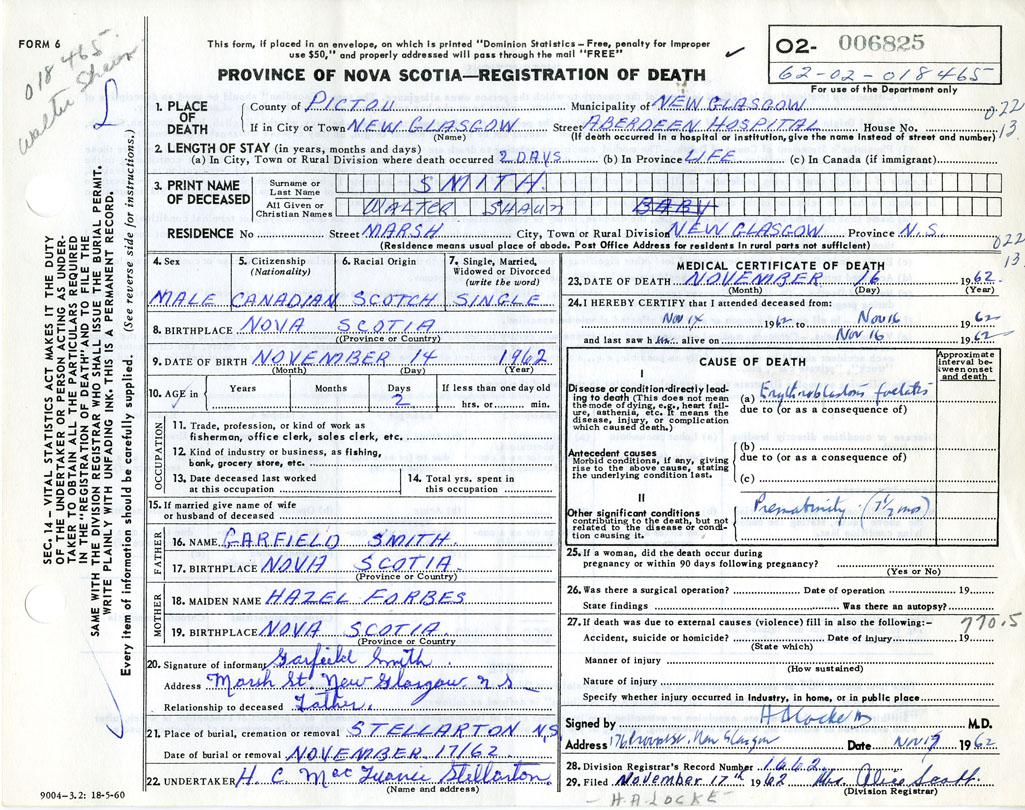 FORM 6
018465
Walter Shaun
This form, if placed in an envelope, on which is printed "Dominion Statistics – Free, penalty for improper
use $50," and properly addressed will pass through the mail "FREE"
PROVINCE OF NOVA SCOTIA—REGISTRATION OF DEATH
O2- 006825
62-02-018465
For use of the Department only
SEC. 14 – VITAL STATISTICS ACT MAKES IT THE DUTY
OF THE UNDERTAKER OR PERSON ACTING AS UNDER-
TAKER TO OBTAIN ALL THE PARTICULARS REQUIRED
IN THE "REGISTRATION OF DEATH" AND TO FILE THE
SAME WITH THE DIVISION REGISTRAR WHO SHALL ISSUE THE BURIAL PERMIT.
WRITE PLAINLY WITH UNFADING INK-THIS IS A PERMANENT RECORD.
Every item of information should be carefully supplied. (See reverse side for instructions.)
1. PLACE OF DEATH
County of PICTOU Municipality of NEW GLASGOW
022
13
If in City or Town NEW GLASGOW Street ABERDEEN HOSPITAL House No.
(Name) (If death occurred in a hospital or institution, give the name instead of street and number)
2. LENGTH OF STAY (in years, months and days)
(a) In City, Town or Rural Division where death occurred 2 DAYS (b) In Province LIFE (c) In Canada (if immigrant)
3. PRINT NAME OF DECEASED
Surname or Last Name SMITH
All Given or Christian Names WALTER SHAUN BABY
RESIDENCE No Street MARSH City, Town or Rural Division NEW GLASGOW Province N.S.
(Residence means usual place of abode. Post Office Address for residents in rural parts not sufficient)
022
13
4. Sex
MALE
5. Citizenship (Nationality)
CANADIAN
6. Racial Origin
SCOTCH
7. Single, Married, Widowed or Divorced (write the word)
SINGLE
8. BIRTHPLACE NOVA SCOTIA
(Province or Country)
9. DATE OF BIRTH NOVEMBER 14 1962
(Month) (Day) (Year)
10. AGE in
Years Months Days If less than one day old
2 hrs. or min.
OCCUPATION
11. Trade, profession, or kind of work as
fisherman, office clerk, sales clerk, etc.
12. Kind of industry or business, as fishing,
bank, grocery store, etc.
13. Date deceased last worked
at this occupation
14. Total yrs. spent in
this occupation
15. If married give name of wife
or husband of deceased
FATHER
16. NAME GARFIELD SMITH
17. BIRTHPLACE NOVA SCOTIA
(Province or Country)
MOTHER
18. MAIDEN NAME HAZEL FORBES
19. BIRTHPLACE NOVA SCOTIA
(Province or Country)
20. Signature of informant Garfield Smith
Address Marsh St. New Glasgow N.S.
Relationship to deceased Father.
21. Place of burial, cremation or removal STELLARTON N.S.
Date of burial or removal NOVEMBER 17/62
22. UNDERTAKER H. C. Stellarton
(Name and address)
9004-3.2: 18-5-60
MEDICAL CERTIFICATE OF DEATH
23. DATE OF DEATH NOVEMBER 16 1962
(Month) (Day) (Year)
24. I HEREBY CERTIFY that I attended deceased from:
Nov 14 1962 to Nov 16 1962
and last saw him alive on Nov 16 1962
CAUSE OF DEATH
Approximate interval between onset and death
I
Disease or condition directly lead-
ing to death (This does not mean
the mode of dying, e.g., heart fail-
ure, asthenia, etc. It means the
disease, injury, or complication
which caused death.)
(a) Erythroblastosis foetalis
due to (or as a consequence of)
Antecedent causes
Morbid conditions, if any, giving
rise to the above cause, stating
the underlying condition last.
(b)
due to (or as a consequence of)
(c)
II
Other significant conditions
contributing to the death, but not
related to the disease or condi-
tion causing it.
Prematurity (7½ mos)
25. If a woman, did the death occur during
pregnancy or within 90 days following pregnancy?
(Yes or No)
26. Was there a surgical operation? Date of operation 19
State findings Was there an autopsy?
27. If death was due to external causes (violence) fill in also the following:–
770.5
Accident, suicide or homicide? Date of injury 19
(State which)
Manner of injury
(How sustained)
Nature of injury
Specify whether injury occurred in Industry, in home, or in public place
Signed by H A Locke M.D.
Address 176 Provost St. New Glasgow Date Nov 17 1962
28. Division Registrar's Record Number 1662
29. Filed November 17th 1962 Mrs. Alice Scott
(Division Registrar)
– H.A. LOCKE –